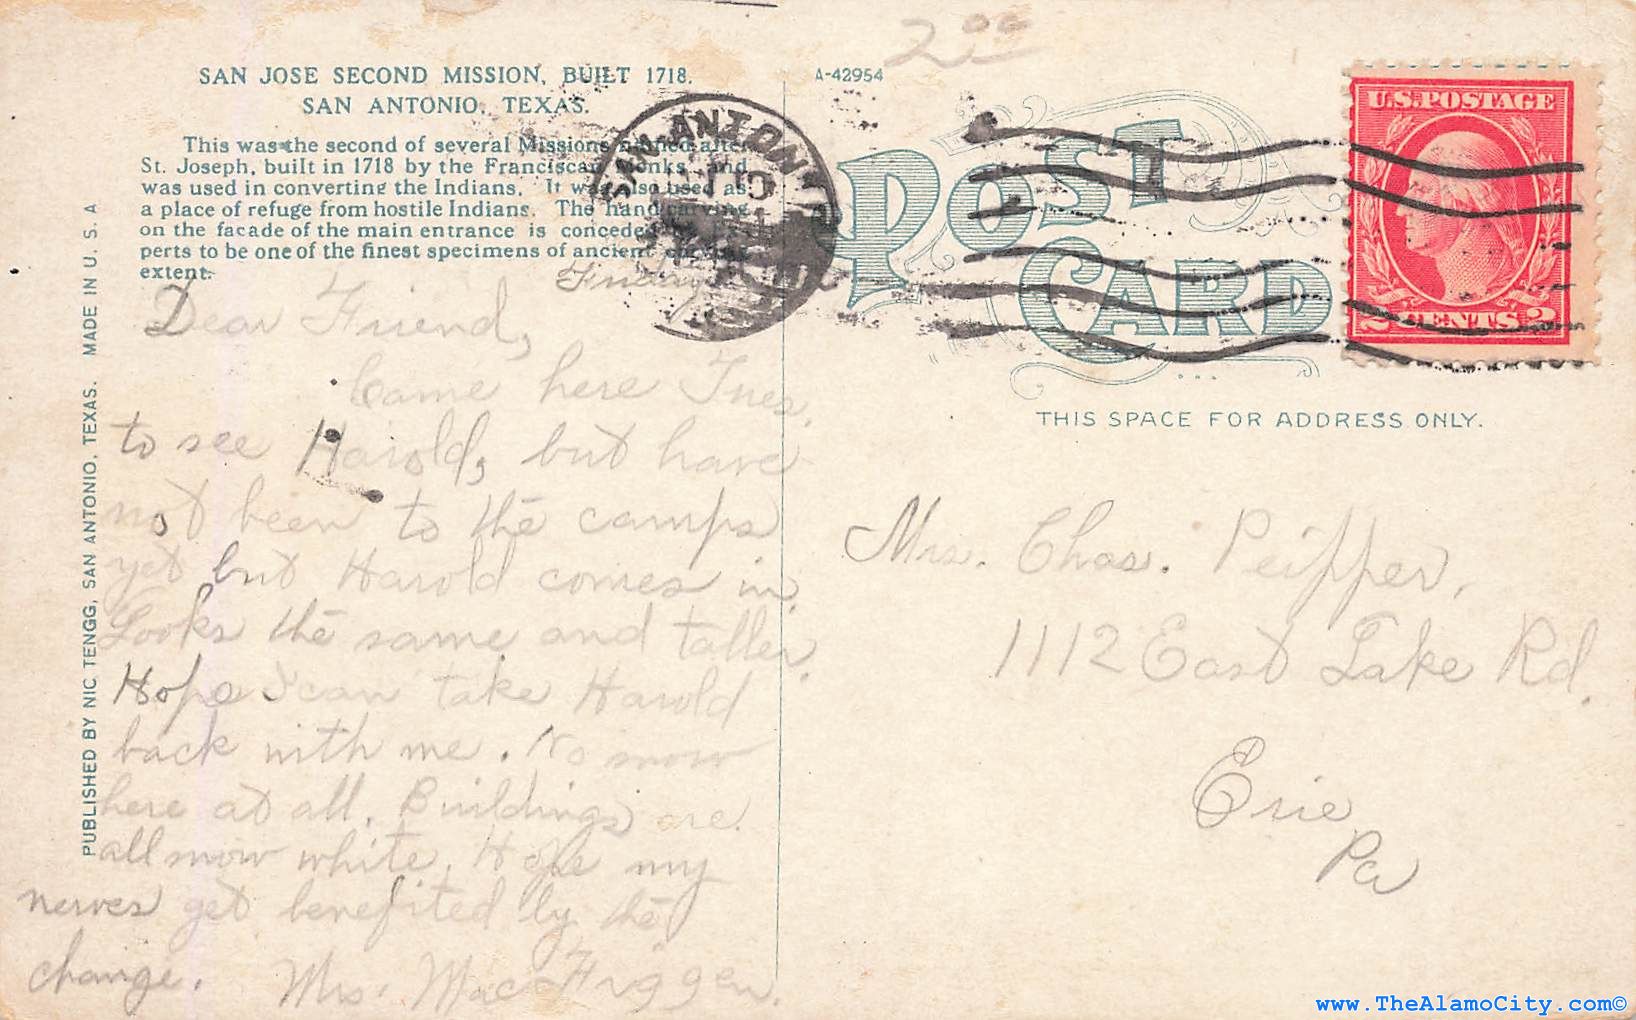 2.00
SAN JOSE SECOND MISSION, BUILT 1718.
SAN ANTONIO, TEXAS.
This was the second of several Missions named after
St. Joseph, built in 1718 by the Franciscan Monks, and
was used in converting the Indians. It was also used as
a place of refuge from hostile Indians. The hand carving
on the facade of the main entrance is conceded by Ex-
perts to be one of the finest specimens of ancient
extent.
Friday
Dear Friend,
Came here Tues.
to see Harold, but have
not been to the camps
yet but Harold comes in.
Looks the same and taller.
Hope I can take Harold
back with me. No snow
here at all. Buildings are
all snow white. Hope my
nerves get benefited by the
change. Mrs. Mac Figgen.
PUBLISHED BY NIC TENGG, SAN ANTONIO, TEXAS. MADE IN U. S. A
A-42954
SAN ANTONIO
POST
CARD
U.S. POSTAGE
2 CENTS 2
THIS SPACE FOR ADDRESS ONLY.
Mrs. Chas. Peiffer,
1112 East Lake Rd.
Erie
Pa
www.TheAlamoCity.com©